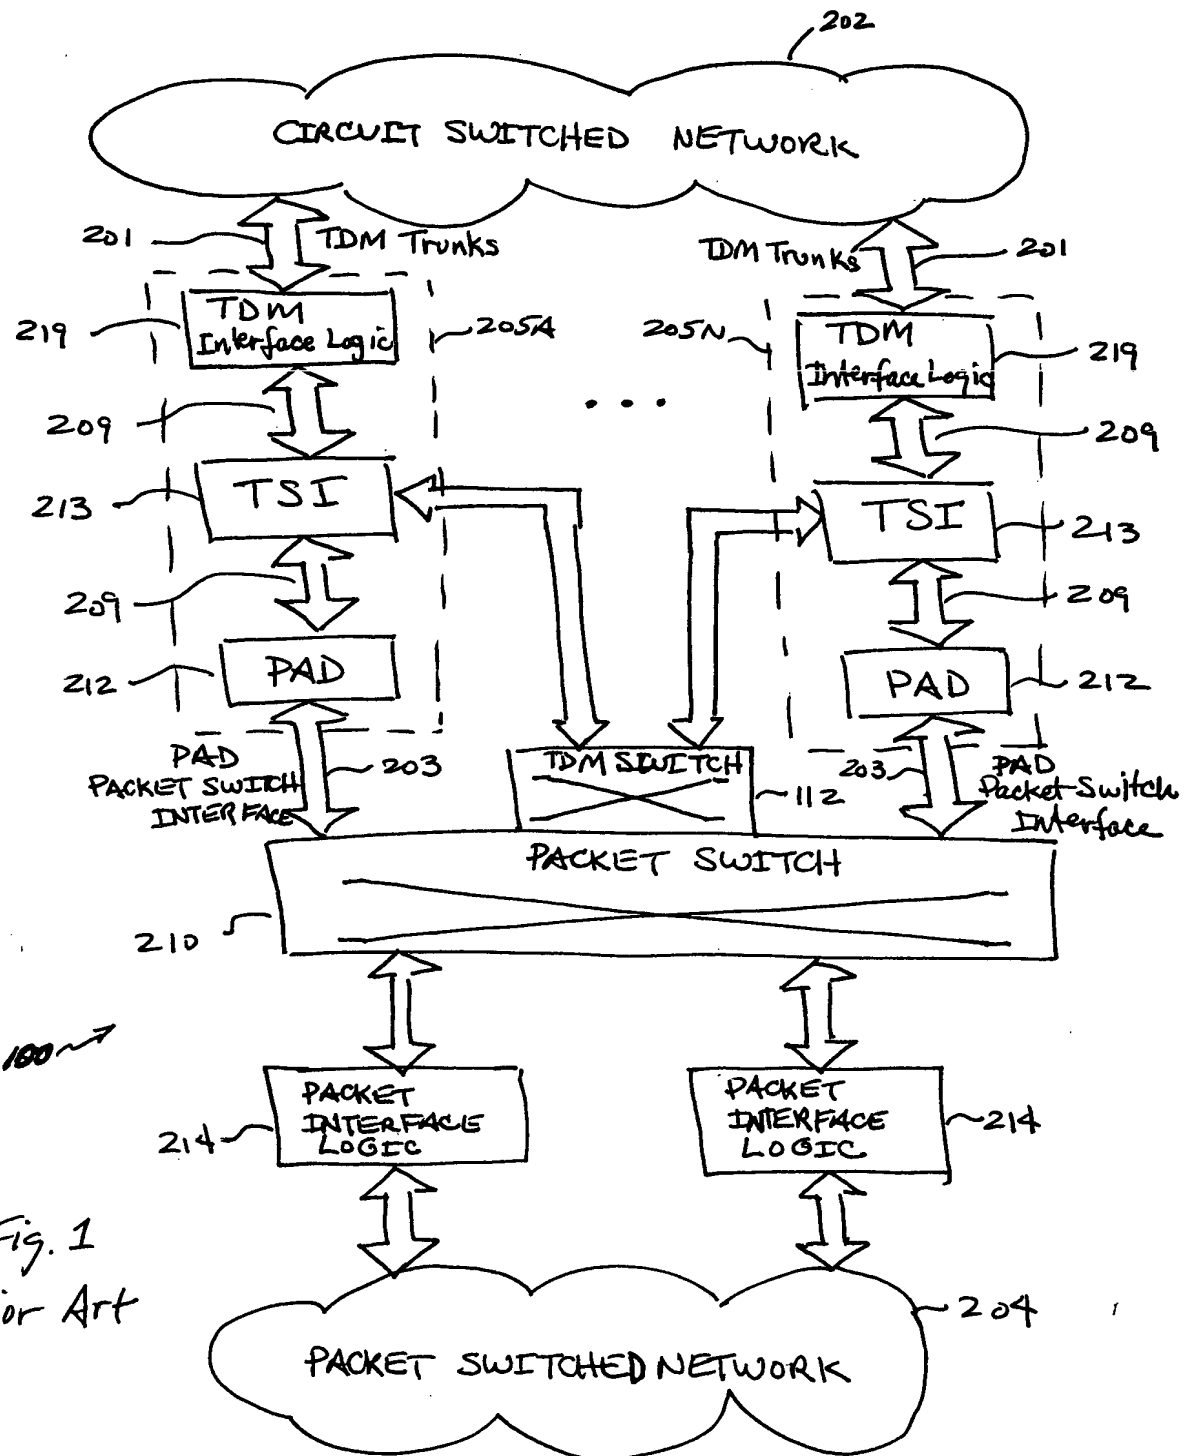 202
CIRCUIT SWITCHED NETWORK
201
TDM Trunks
TDM Trunks
201
219
TDM
Interface Logic
205A
205N
TDM
Interface Logic
219
209
. . .
209
213
TSI
TSI
213
209
209
212
PAD
PAD
212
PAD
PACKET SWITCH
INTERFACE
203
TDM SWITCH
112
203
PAD
Packet-Switch
Interface
PACKET SWITCH
210
100
PACKET
INTERFACE
LOGIC
214
PACKET
INTERFACE
LOGIC
214
Fig. 1
or Art
204
PACKET SWITCHED NETWORK